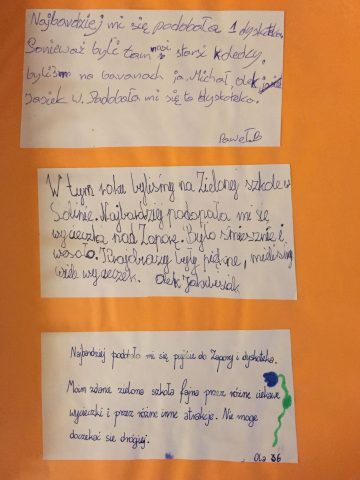 Najbardziej mi się podobała 1 dyskoteka.
Ponieważ byli tam nasi starsi koledzy,
byliśmy na bananach ja, Michał, Olek
Jasiek W. Podobała mi się ta dyskoteka.
Paweł.B
W tym roku byliśmy na Zielonej szkole w
Solinie. Najbardziej podopała mi się
wycieczka nad Zaporę. Było śmiesznie i
wesoło. Krajobrazy były piękne, mieliśmy
wiele wycieczek. Olek Jakubusiak
Najbardziej podobało mi się pujście do Zapory i dyskoteka.
Moim zdanie zielona szkoła fajna przez różne ciekawe
wycieczki i przez różne inne atrakcje. Nie moge
doczekać się drógiej.
Ola 3b